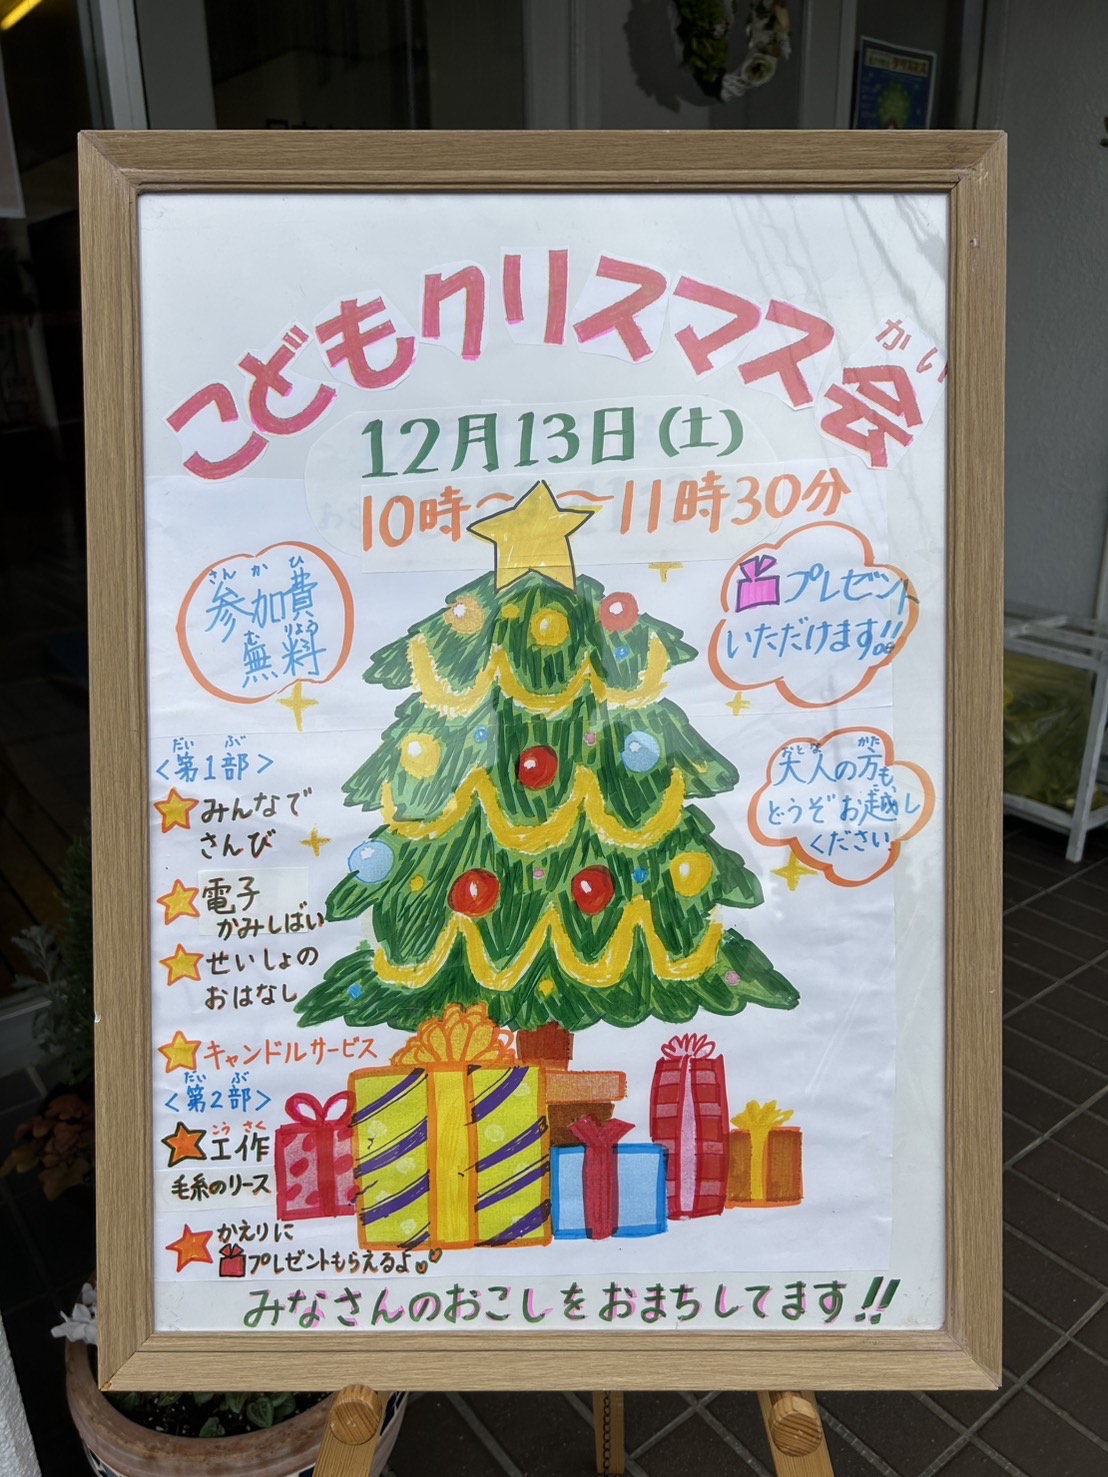 こどもクリスマス会
かい
12月13日(土)
10時〜〜11時30分
さんかひ
参加費
むりょう
無料
プレゼント
いただけます!!
おとな かた
大人の方も
どうぞお越し
ください
だい ぶ
<第1部>
みんなで
さんび
電子
かみしばい
せいしょの
おはなし
キャンドルサービス
だい ぶ
<第2部>
こうさく
工作
毛糸のリース
かえりに
プレゼントもらえるよ
みなさんのおこしをおまちしてます!!